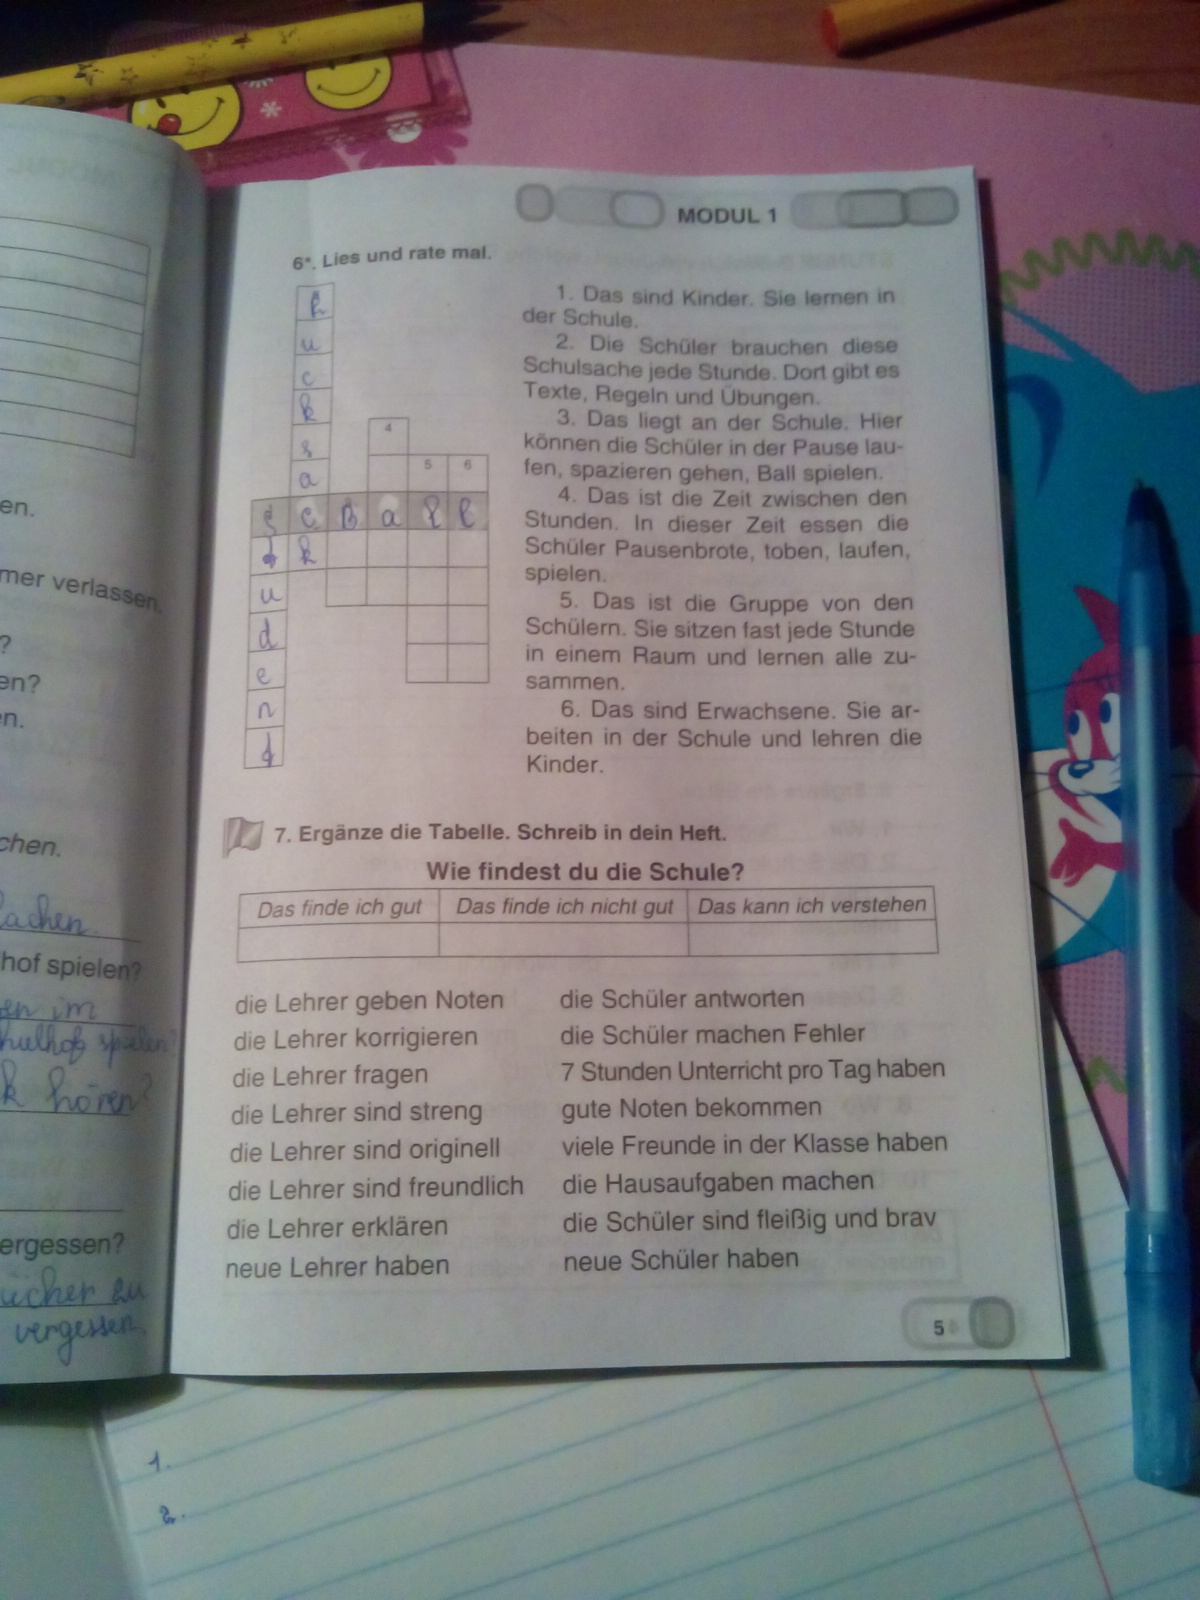 MODUL 1
6*. Lies und rate mal.
R
u
c
k
s
a
4
5 6
S c B a l l
t k
u
d
e
n
t
1. Das sind Kinder. Sie lernen in
der Schule.
2. Die Schüler brauchen diese
Schulsache jede Stunde. Dort gibt es
Texte, Regeln und Übungen.
3. Das liegt an der Schule. Hier
können die Schüler in der Pause lau-
fen, spazieren gehen, Ball spielen.
4. Das ist die Zeit zwischen den
Stunden. In dieser Zeit essen die
Schüler Pausenbrote, toben, laufen,
spielen.
5. Das ist die Gruppe von den
Schülern. Sie sitzen fast jede Stunde
in einem Raum und lernen alle zu-
sammen.
6. Das sind Erwachsene. Sie ar-
beiten in der Schule und lehren die
Kinder.
7. Ergänze die Tabelle. Schreib in dein Heft.
Wie findest du die Schule?
Das finde ich gut Das finde ich nicht gut Das kann ich verstehen
die Lehrer geben Noten
die Lehrer korrigieren
die Lehrer fragen
die Lehrer sind streng
die Lehrer sind originell
die Lehrer sind freundlich
die Lehrer erklären
neue Lehrer haben
die Schüler antworten
die Schüler machen Fehler
7 Stunden Unterricht pro Tag haben
gute Noten bekommen
viele Freunde in der Klasse haben
die Hausaufgaben machen
die Schüler sind fleißig und brav
neue Schüler haben
5
en.
mer verlassen.
?
en?
n.
chen.
lachen.
hof spielen?
en im
hulhof spielen?
k hören?
ergessen?
ücher zu
vergessen.
1.
2.